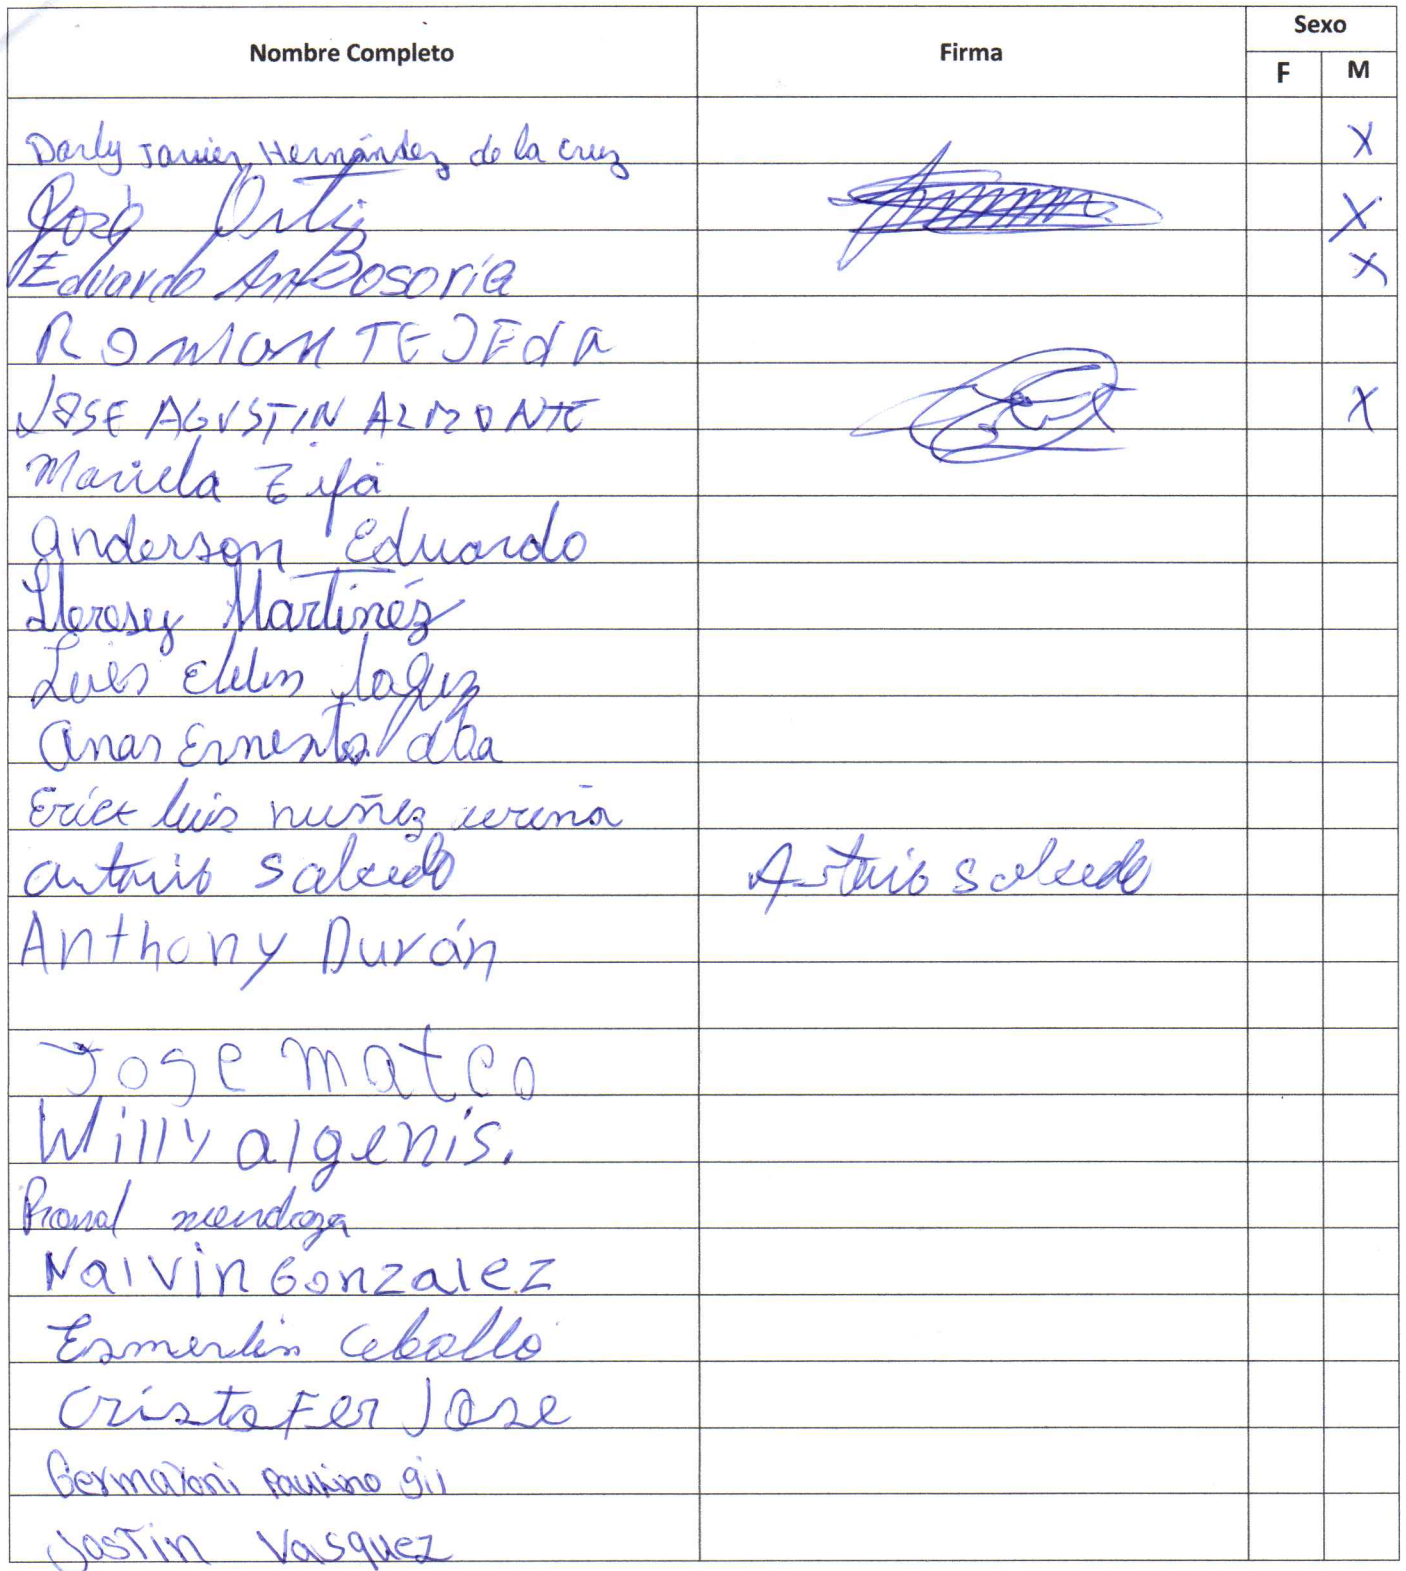 Nombre Completo Firma Sexo
F M
Darly Javier Hernández de la cruz X
José Ortiz X
Eduardo AmBosoria X
ROMON TEJEdA
JOSE AGUSTIN ALMONTE X
Mariela
anderson Eduardo
Martinéz
Luis
Ernesto
Erick luis nuñez ureña
antonio Salcedo Antonio Salcedo
Anthony Durán
Jose mateo
Willy algenis.
mendoza
Nalvin Gonzalez
Esmerlin Ceballo
CristoFer Jose
Paulino gil
Jastin Vasquez